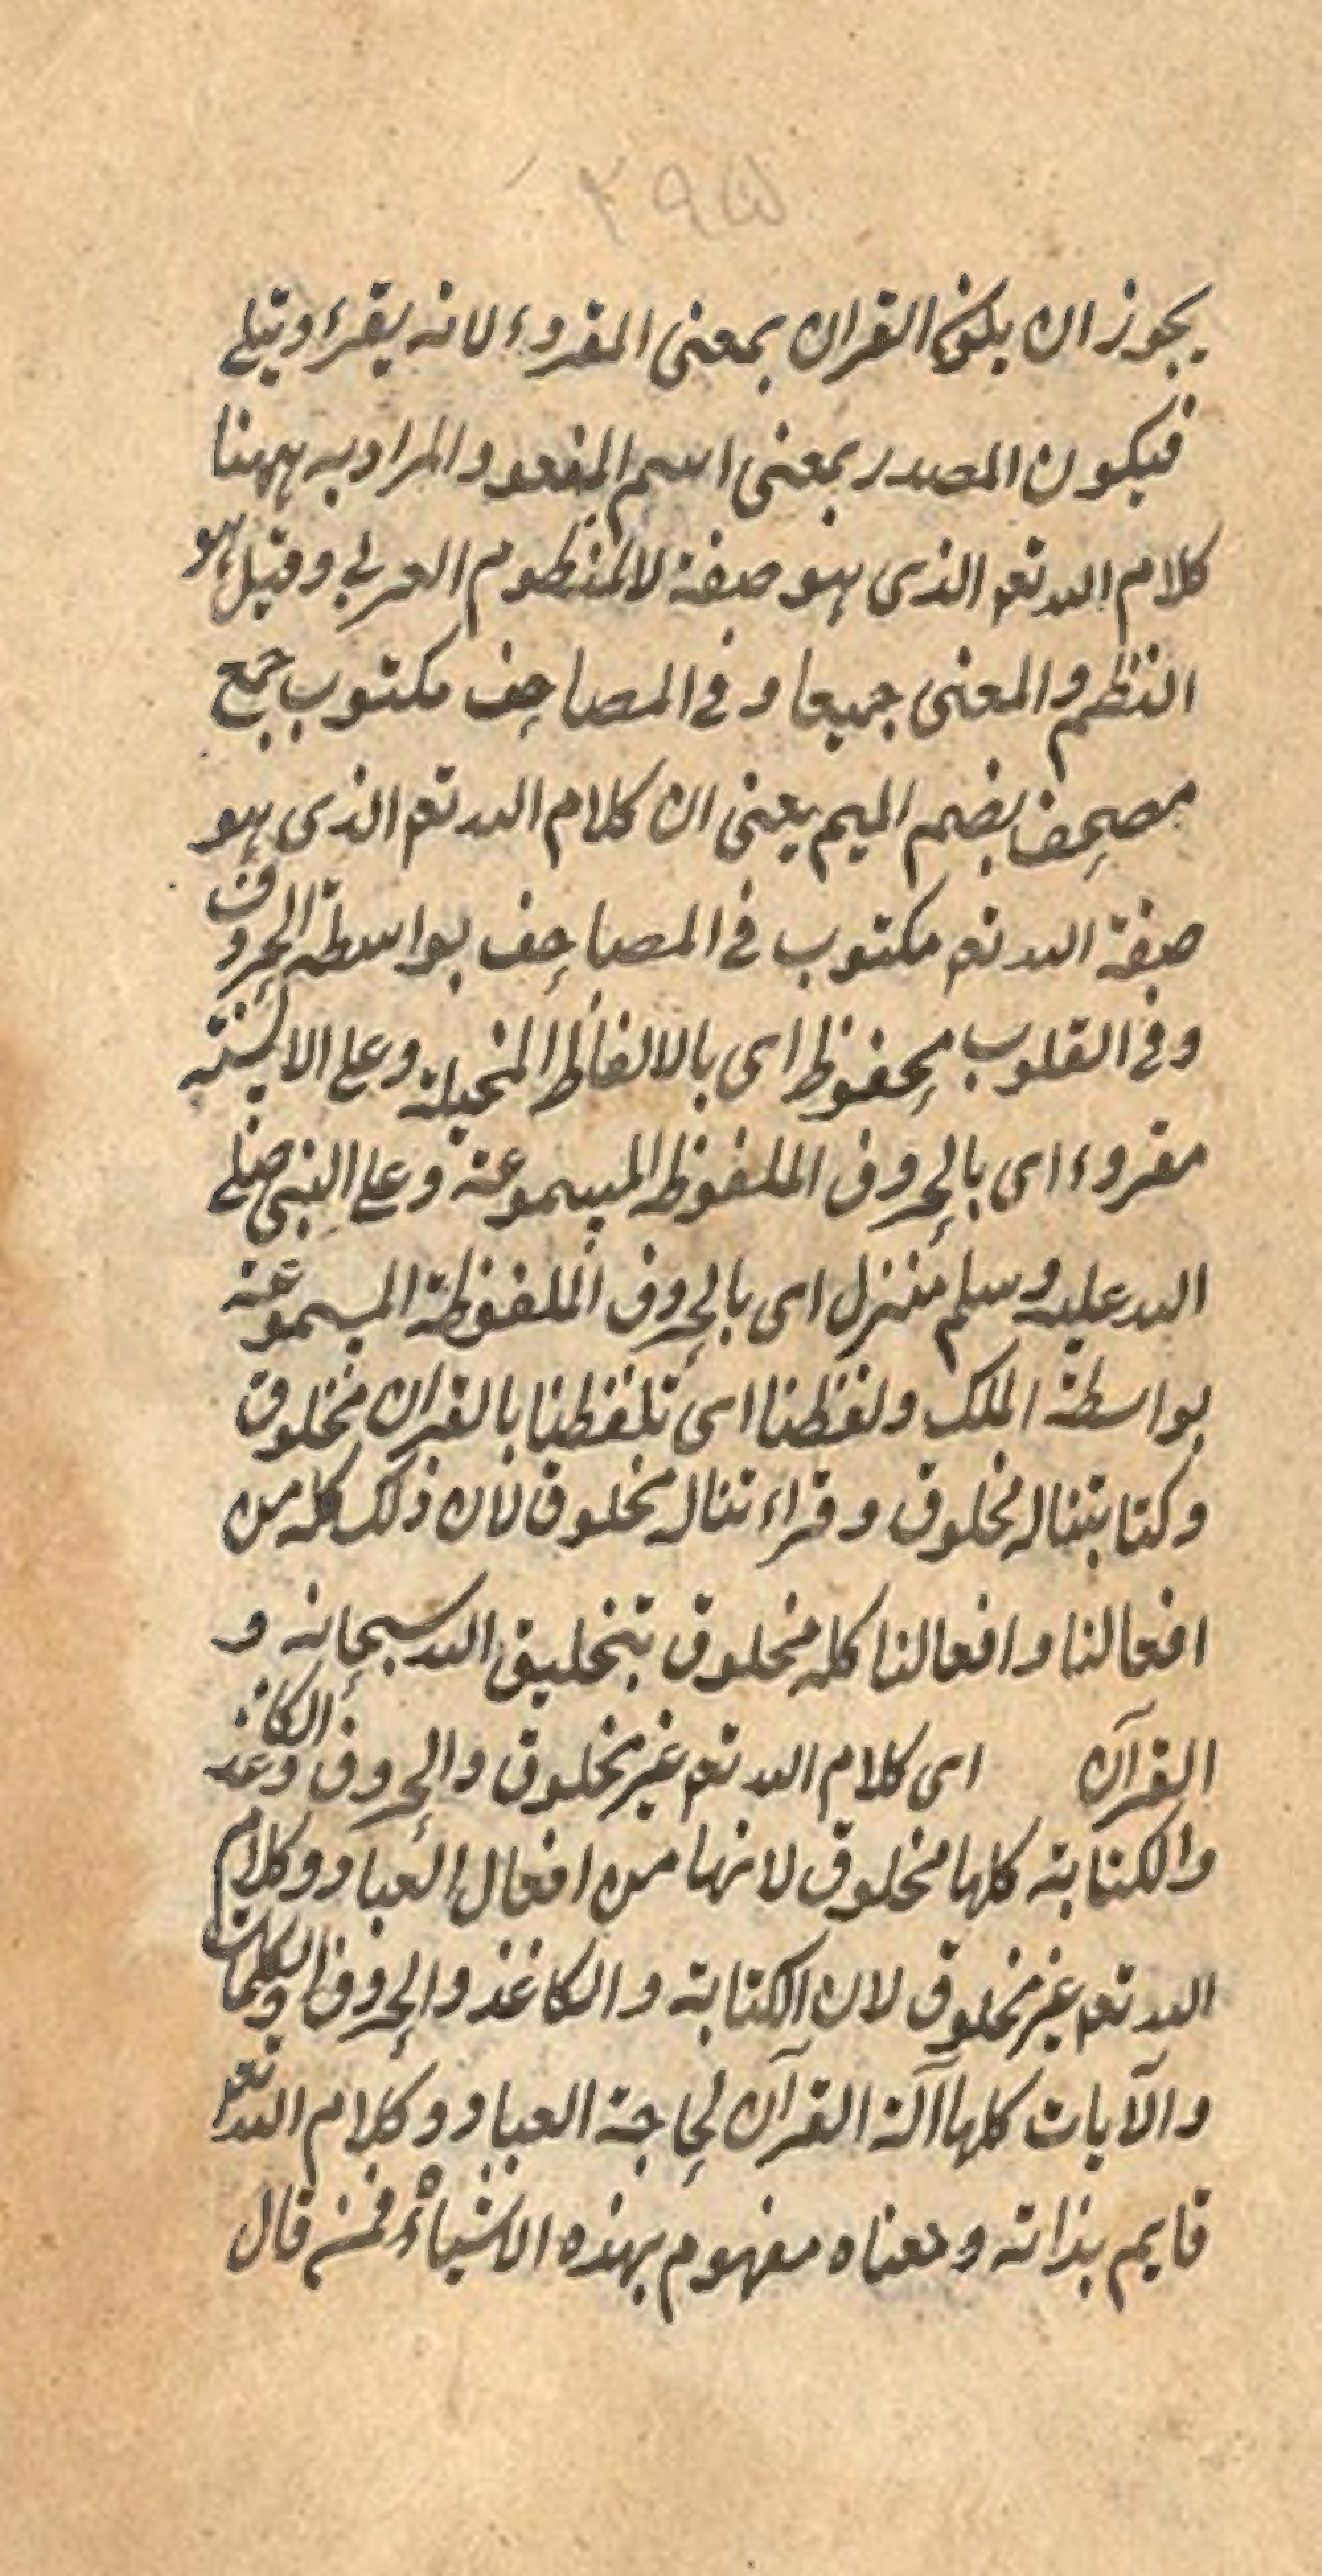 ٢٩۵
يجوز ان يكون القران بمعنى المقروء لانه يقرء ويتلے
فيكون المصدر بمعنى اسم المفعول والمراد به ههنا
كلام الله تعم الذى هو صفة لا المنظوم العربي وقيل هو
النظم والمعنى جميعا وفى المصاحف مكتوب جمع
مصحف بضم الميم يعنى ان كلام الله تعم الذى هو
صفة الله تعم مكتوب فى المصاحف بواسطة الحروف
وفى القلوب محفوظ اى بالالفاظ المخيلة وعلى الالسنته
مقروء اى بالحروف الملفوظ المسموعة وعلى النبى صلے
الله عليه وسلم منزل اى بالحروف الملفوظة المسموعة
بواسطة الملك ولفظنا اى تلفظنا بالقران مخلوق
وكتابتنا له مخلوق وقراءتنا له مخلوق لان ذلك كله من
افعالنا وافعالنا كله مخلوق بتخليق الله سبحانه و
القرآن اى كلام الله تعم غير مخلوق والحروف والكاغذ
والكتابة كلها مخلوق لانها من افعال العباد وكلام
الله تعم غير مخلوق لان الكتابة والكاغذ والحروف والكلمات
والآيات كلها آلة القرآن لحاجة العباد وكلام الله تعم
قايم بذاته ومعناه مفهوم بهذه الاشياء فمن قال